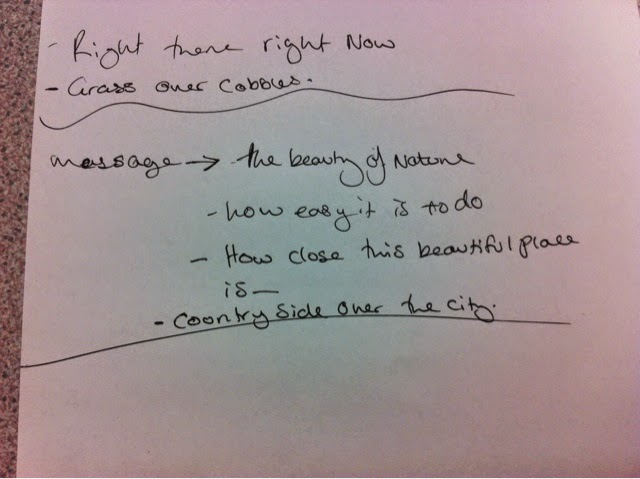 - Right there right Now
- Grass over cobbles.
message → the beauty of Nature
- how easy it is to do
- How close this beautiful place
is —
- Country side over the city.